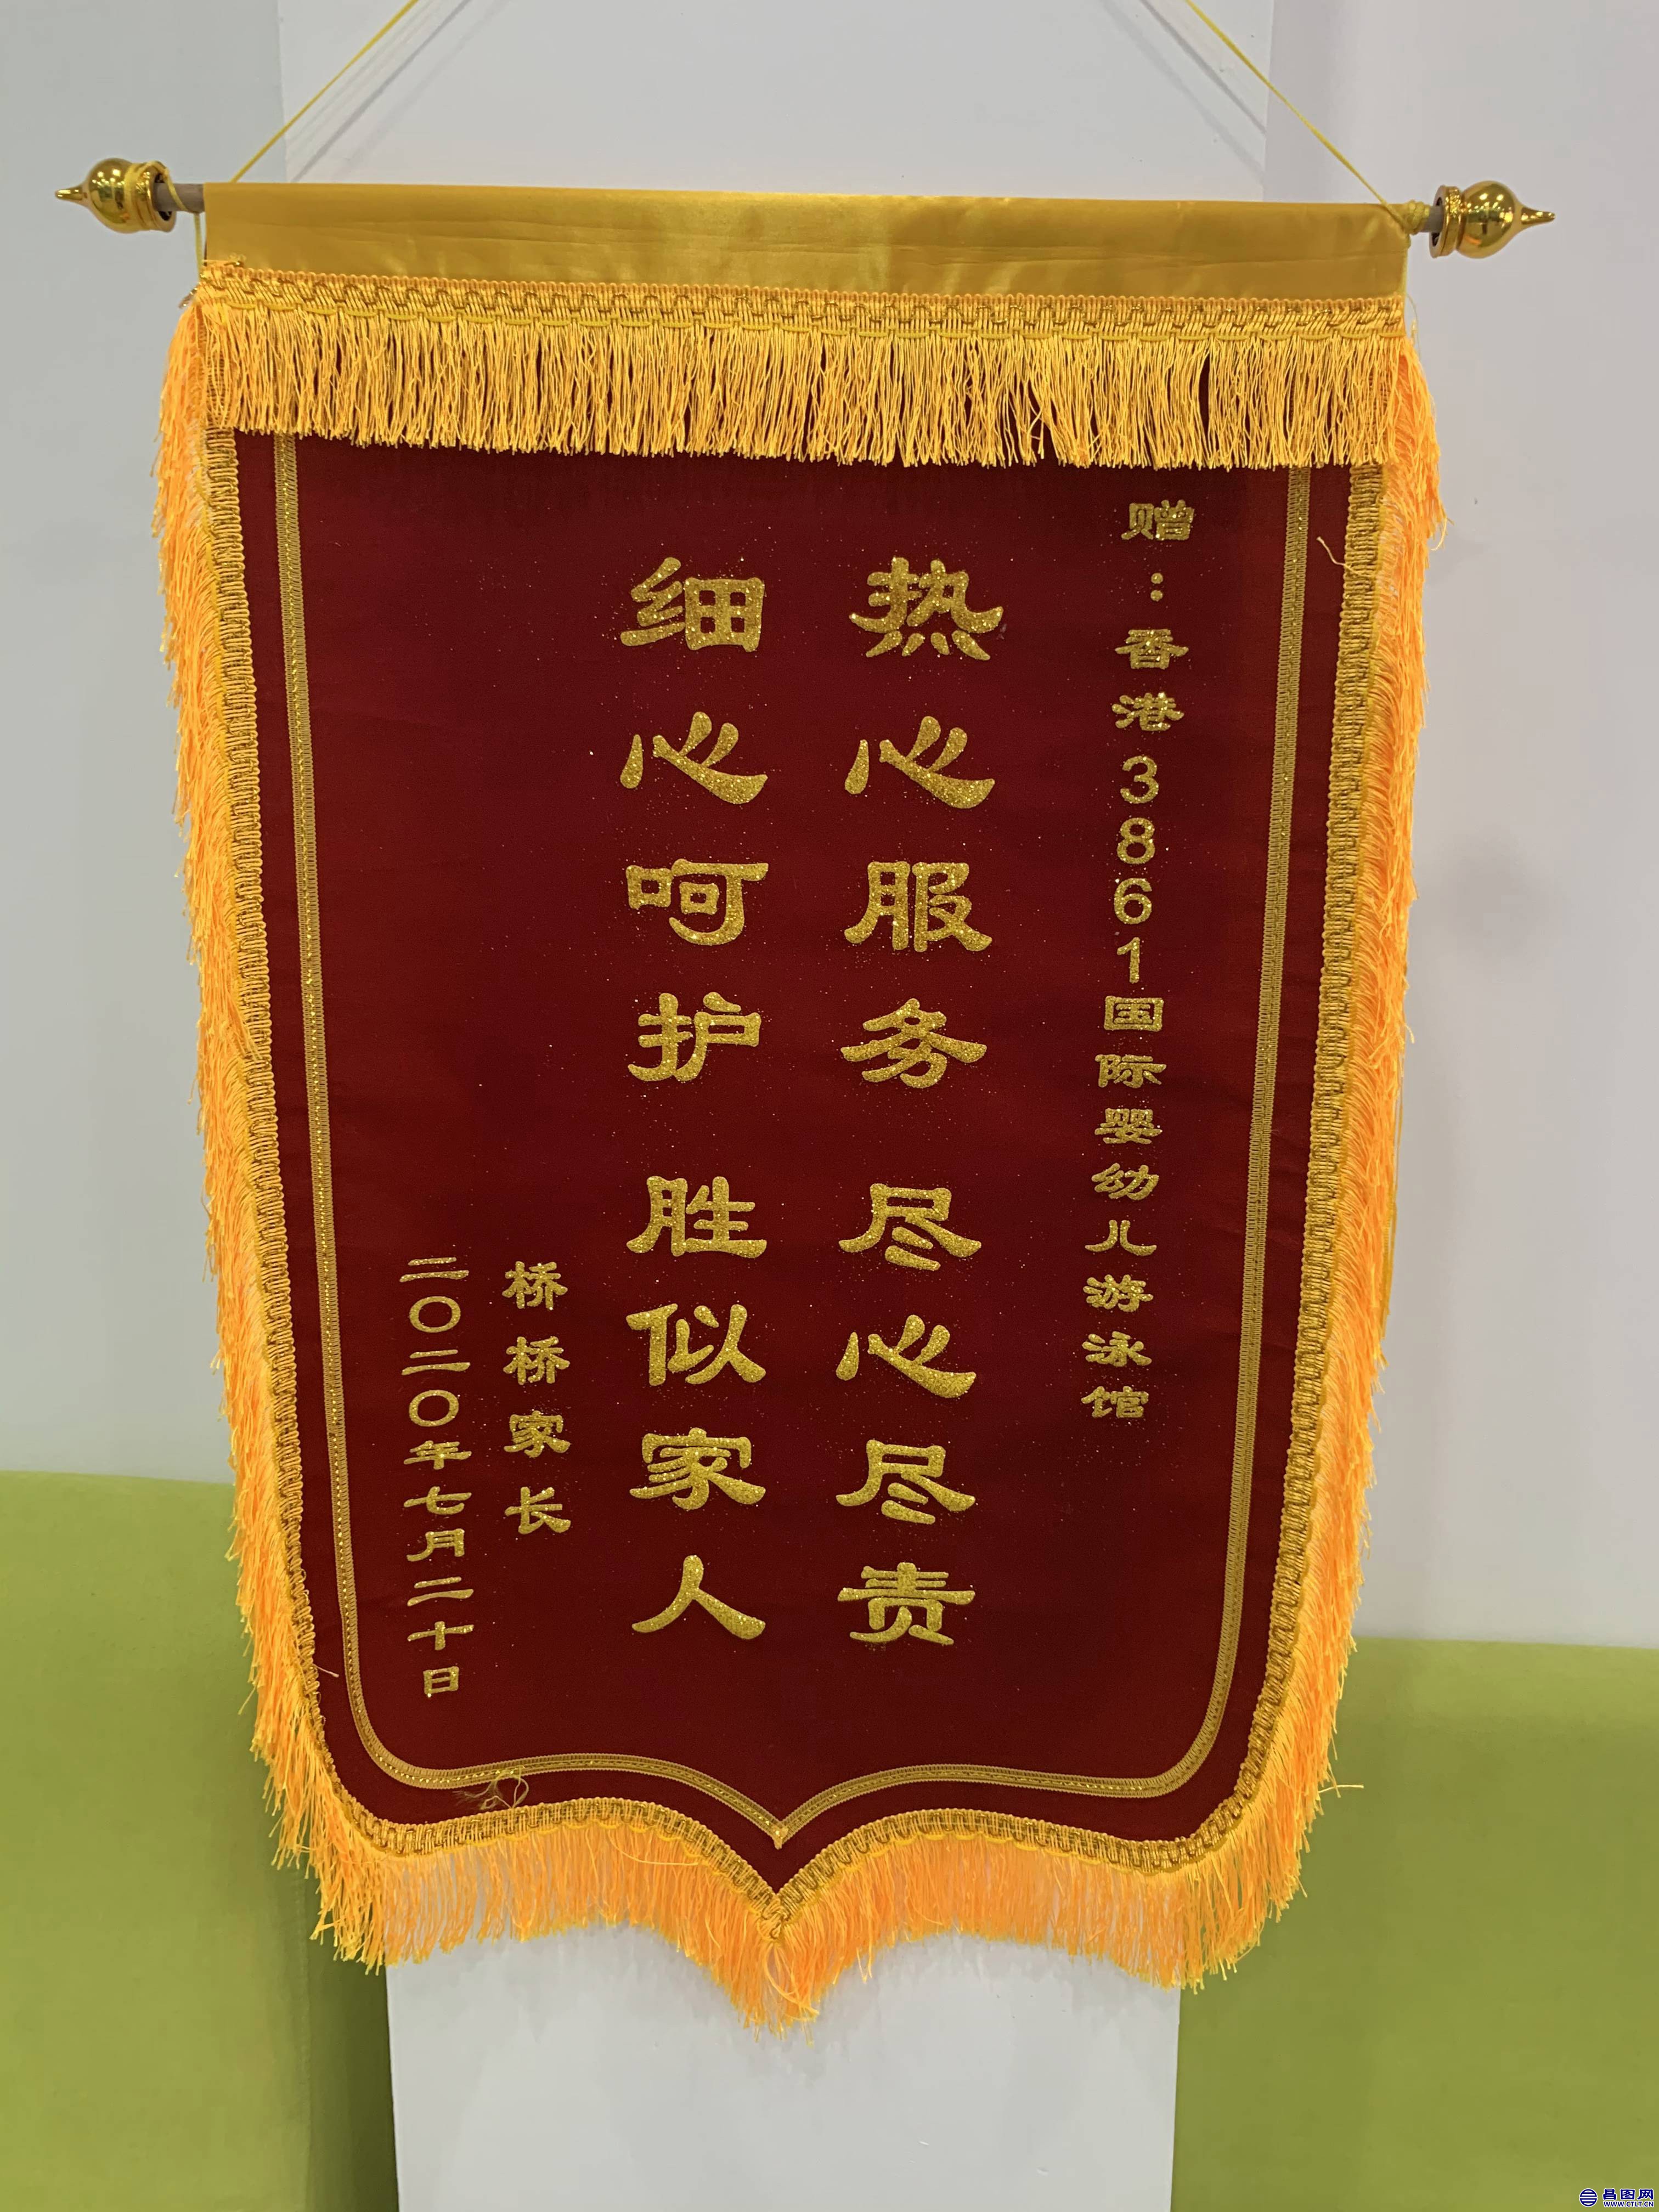 赠：香港3861国际婴幼儿游泳馆
热心服务 尽心尽责
细心呵护 胜似家人
桥桥家长
二〇二〇年七月二十日
昌图网
WWW.CTLT.CN